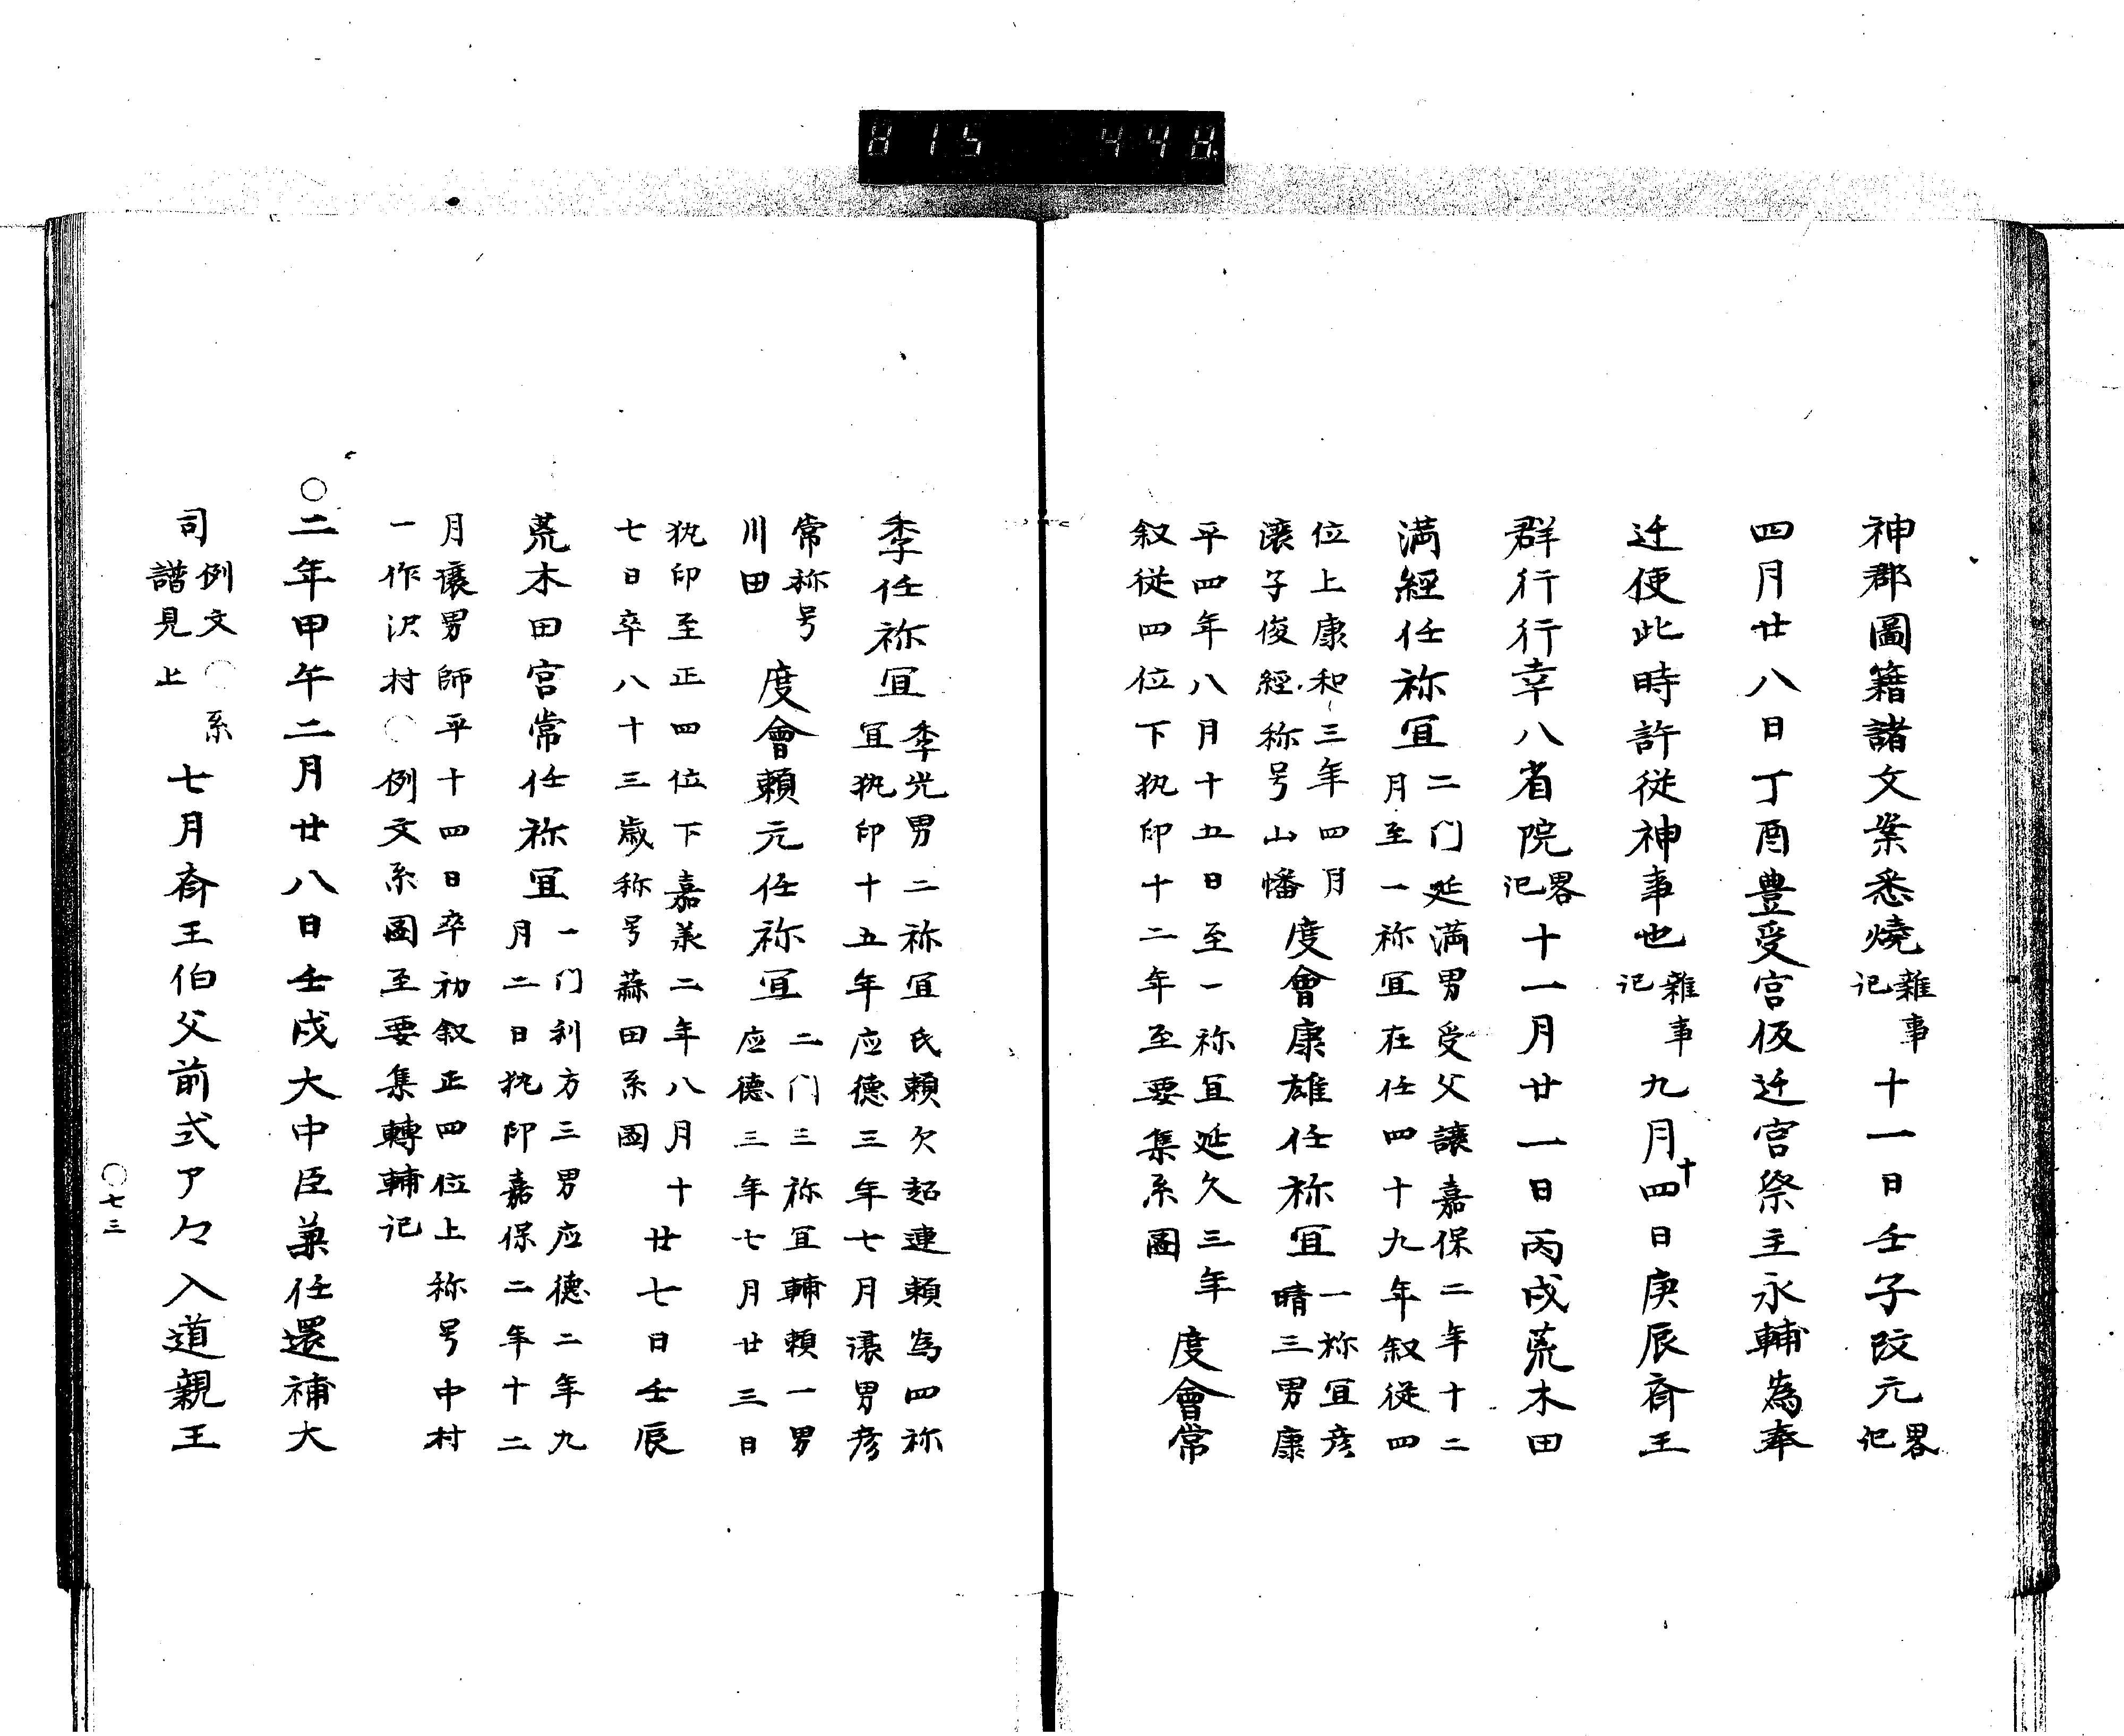 815 448
神郡圖籍諸文案悉燒雜事記十一日壬子改元畧記
四月廿八日丁酉豊受宮仮迁宮祭主永輔為奉
迁使此時許従神事也雜事記九月十四日庚辰斉王
群行行幸八省院畧記十一月廿一日丙戌荒木田
満經任祢冝二门延満男受父譲嘉保二年十二
月至一祢冝在任四十九年叙従四
位上康和三年四月
譲子俊經称号山幡度會康雄任祢冝一祢冝彦
晴三男康
平四年八月十五日至一祢冝延久三年
叙従四位下执印十二年至要集系圖度會常
季任祢冝季光男二祢冝氏頼欠起連頼為四祢
冝执印十五年应德三年七月譲男彦
常称号
川田度會頼元任祢冝二门三祢冝輔頼一男
应德三年七月廿三日
执印至正四位下嘉承二年八月十
七日卒八十三歳称号蒜田系圖廿七日壬辰
荒木田宮常任祢冝一门利方三男应德二年九
月二日执印嘉保二年十二
月譲男師平十四日卒初叙正四位上称号中村
一作沢村○例文系圖至要集轉輔记
○二年甲午二月廿八日壬戌大中臣兼任還補大
司例文○系
譜見上七月斉王伯父前式ア々入道親王
○七三